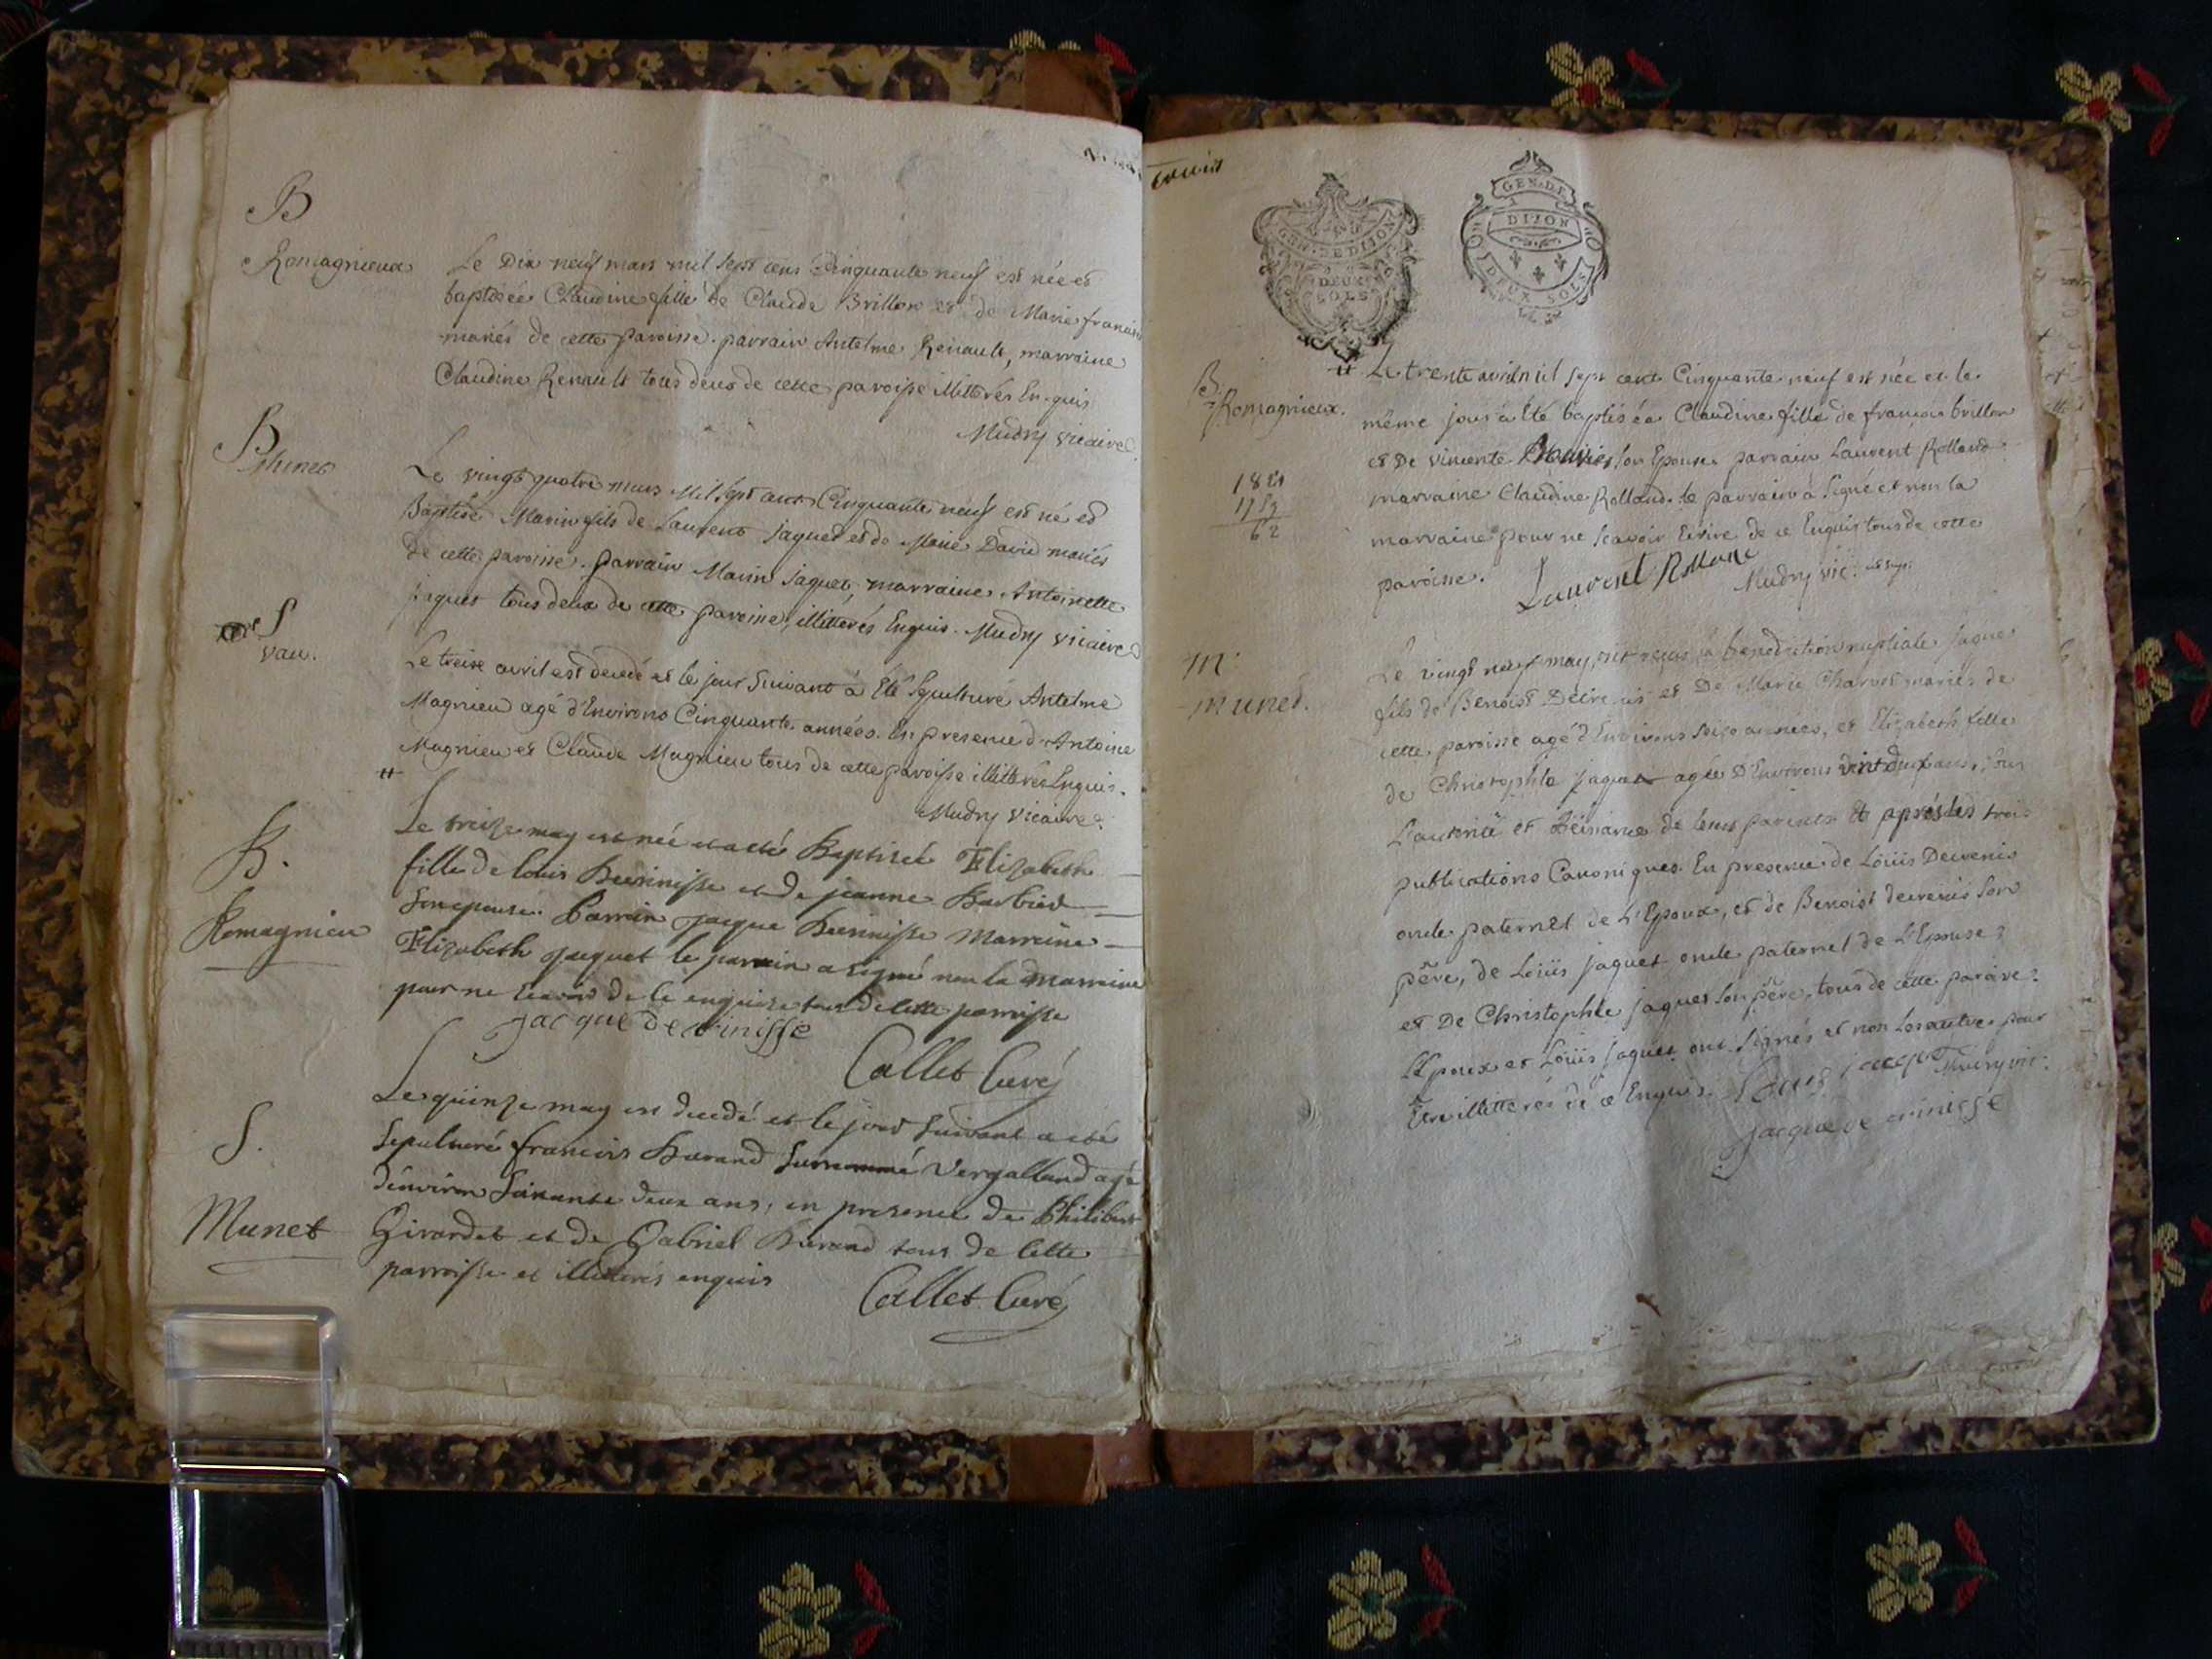 B
Romagnieux
Le Dix neuf mars mil sept cens Cinquante neuf est née et
baptisée Claudine fille de Claude Brillon et de Marie francois
mariés de cette paroisse. parrain Antelme Renault, marraine
Claudine Renault tous deux de cette paroisse illitterés Enquis
Mudry vicaire
B
Le vingt quatre mars Mil sept cent Cinquante neuf est né et
Baptisé Marin fils de Laurent Jaquet et de Marie David mariés
de cette paroisse. parrain Marin Jaquet, marraine Antoinette
Jaquet tous deux de cette paroisse, illitterés Enquis. Mudry vicaire
S
vau.
Le treize avril est decedé et le jour Suivant à Eté Sepulturé Antelme
Magnieu agé d'Environs Cinquante années. En presence d'Antoine
Magnieu et Claude Magnieu tous de cette paroisse illitterés Enquis.
Mudry Vicaire
B.
Romagnieu
Le treize may est née et a eté Baptisée Elizabeth
fille de louis Decrinisse et de jeanne Barbier
Son epouse. Parrain jacque Decrinisse Marraine
Elizabeth jaquet le parrain a signé non la marraine
pour ne scavoir de ce enquise tous de cette parroisse
jacque de crinisse
Callet Curé
S.
Munet
Le quinze may est decedé et le jour Suivant a eté
Sepulturé francois Durand Surnommé Vergalland agé
d'environ Soixante deux ans, en presence de Philibert
Girardet et de Gabriel Durand tous de cette
parroisse et illitterés enquis
Callet Curé
GEN. DE DIJON
DEUX
SOLS
GEN. DE
DIJON
DEUX SOLS
B.
Romagnieux.
1821
1759
62
Le trente avril mil sept cent Cinquante neuf est née et le
même jour à Eté baptisée Claudine fille de francois brillon
et De vincente son Epouse. parrain Laurent Rolland
marraine Claudine Rolland. le parrain à Signé et non la
marraine pour ne Scavoir Ecrire de ce Enquis tous de cette
paroisse.
Laurent Rolland
Mudry vic:
M:
munet.
Le vingt neuf may, ont reçus la benediction nuptiale Jaque
fils de Benoist Decrenis et De Marie Charvet mariés de
cette paroisse agé d'Environs seize années, et Elizabeth fille
de Christophle Jaquet agée D'Environs vint deux ans, Sous
L'autorité et de leurs parents et après les trois
publications Canoniques. En presence de Loüis Decrenis
oncle paternel de L'Epoux, et de Benoist decrenis Son
pére, de Loüis jaquet oncle paternel de L'Epouse
et De Christophle jaquet son pére, tous de cette paroisse
L'Epoux et Loüis jaquet ont Signés et non les autres pour
Etre illitterés de ce Enquis.
jacque de crinisse